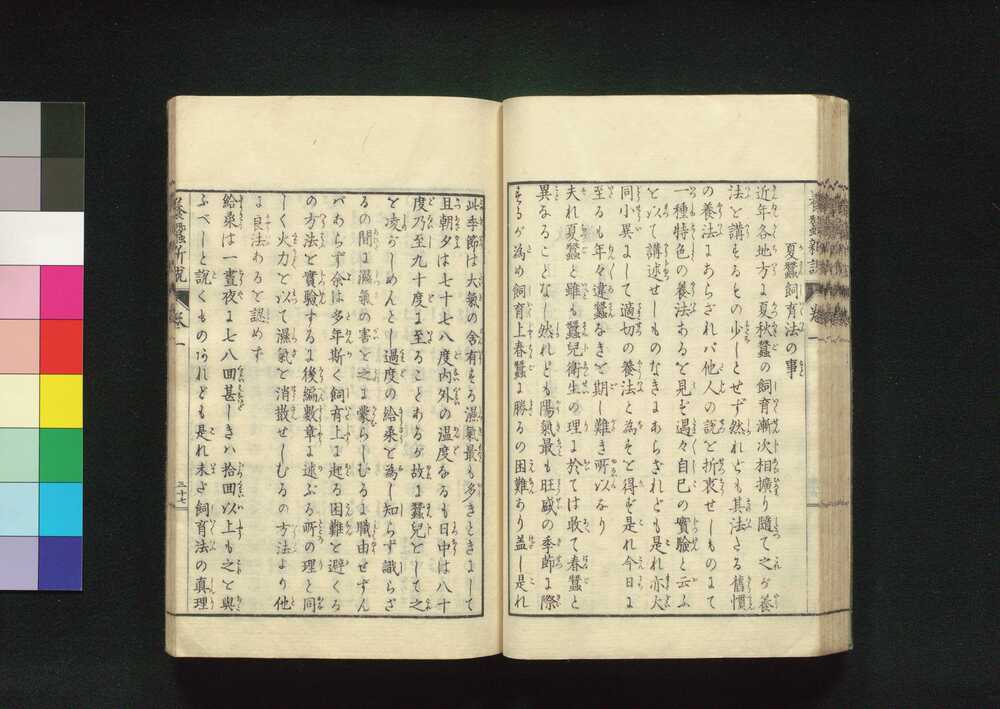 夏蠶飼育法の事
近年各地方に夏秋蠶の飼育漸次相擴り隨て之が養
法を講するもの少しとせず然れども其法さる舊慣
の養法にあらざれバ他人の説を折衷せしものまて
一種特色の養法あるを見ず遇々自己の實驗と云ふ
を以て講述せしものなきにあらざれども是れ亦大
同小異にして適切の養法と為すを得ず是れ今日に
至るも年々違蠶なきを期し難き所以なり
夫れ夏蠶と雖も蠶兒衛生の理に於ては敢て春蠶と
異なることなし然れども陽氣最も旺盛の季節に際
するが為め飼育上春蠶に勝るの困難あり蓋し是れ
此季節は大氣の含有する濕氣最も多きときにして
且朝夕は七十七八度内外の温度なるも日中は八十
度乃至九十度に至ることあるが故に蠶兒をして之
を凌がしめんとし過度の給桑を為し知らず識らざ
るの間に濕氣の害を之に蒙らしむるに職由せずん
バあらず余は多年斯く飼育上に起る困難を避くる
の方法を實驗するに後編數章に述ぶる所の理と同
しく火力を以て濕氣を消散せしむるの方法より他
に良法あるを認めず
給桑は一晝夜に七八回甚しきハ拾回以上も之を與
ふべしと説くものあれども是れ未だ飼育法の真理
養蠶新説
卷一
三十七